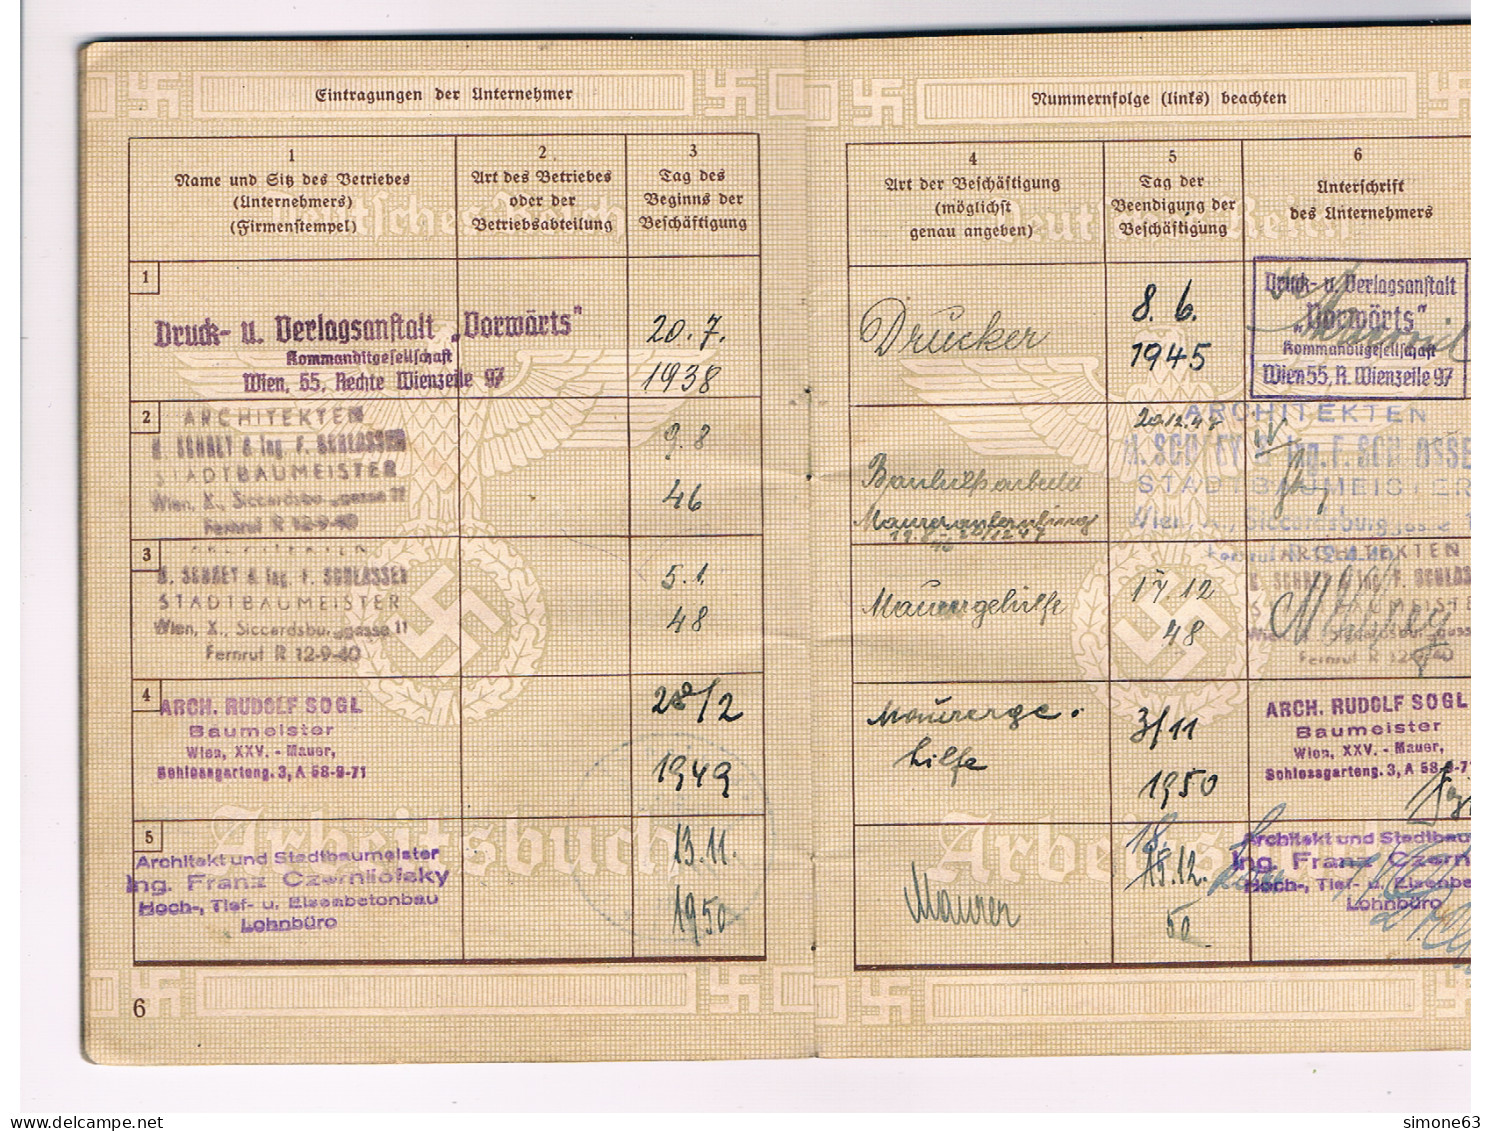 Eintragungen der Unternehmer
1
Name und Sitz des Betriebes
(Unternehmers)
(Firmenstempel)
2
Art des Betriebes
oder der
Betriebsabteilung
3
Tag des
Beginns der
Beschäftigung
1
Druck- u. Verlagsanstalt „Vorwärts"
Kommanditgesellschaft
Wien, 55, Rechte Wienzeile 97
20.7.
1938
2
ARCHITEKTEN
& Ing. F. SCHLOSSER
STADTBAUMEISTER
Wien, X., Siccardsburggasse 11
Fernruf R 12-9-40
9.8
46
3
& Ing. F. SCHLOSSER
STADTBAUMEISTER
Wien, X., Siccardsburggasse 11
Fernruf R 12-9-40
5.1.
48
4
ARCH. RUDOLF SOGL
Baumeister
Wien, XXV. - Mauer,
Schlossgarteng. 3, A 58-9-71
28/2
1949
5
Architekt und Stadtbaumeister
Ing. Franz Czernilofsky
Hoch-, Tief- u. Eisenbetonbau
Lohnbüro
13.11.
1950
Arbeitsbuch
6
Nummernfolge (links) beachten
4
Art der Beschäftigung
(möglichst
genau angeben)
5
Tag der
Beendigung der
Beschäftigung
6
Unterschrift
des Unternehmers
Drucker
8.6.
1945
Druck- u. Verlagsanstalt
„Vorwärts"
Kommanditgesellschaft
Wien 55, R. Wienzeile 97
Bauhilfsarbeiter
20.12.47
ARCHITEKTEN
STADTBAUMEISTER
Maurergehilfe
17.12
48
ARCHITEKTEN
Maurerge-
hilfe
3/11
1950
ARCH. RUDOLF SOGL
Baumeister
Wien, XXV. - Mauer,
Schlossgarteng. 3, A 58-9-71
Maurer
12.
50
Architekt und Stadtbau
Ing. Franz Czerni
Hoch-, Tief- u. Eisenbe
Lohnbüro
simone63